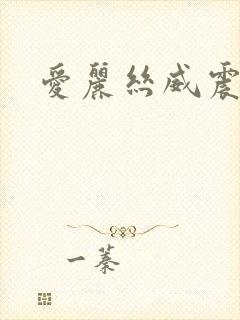 愛麗絲威震
一蓁